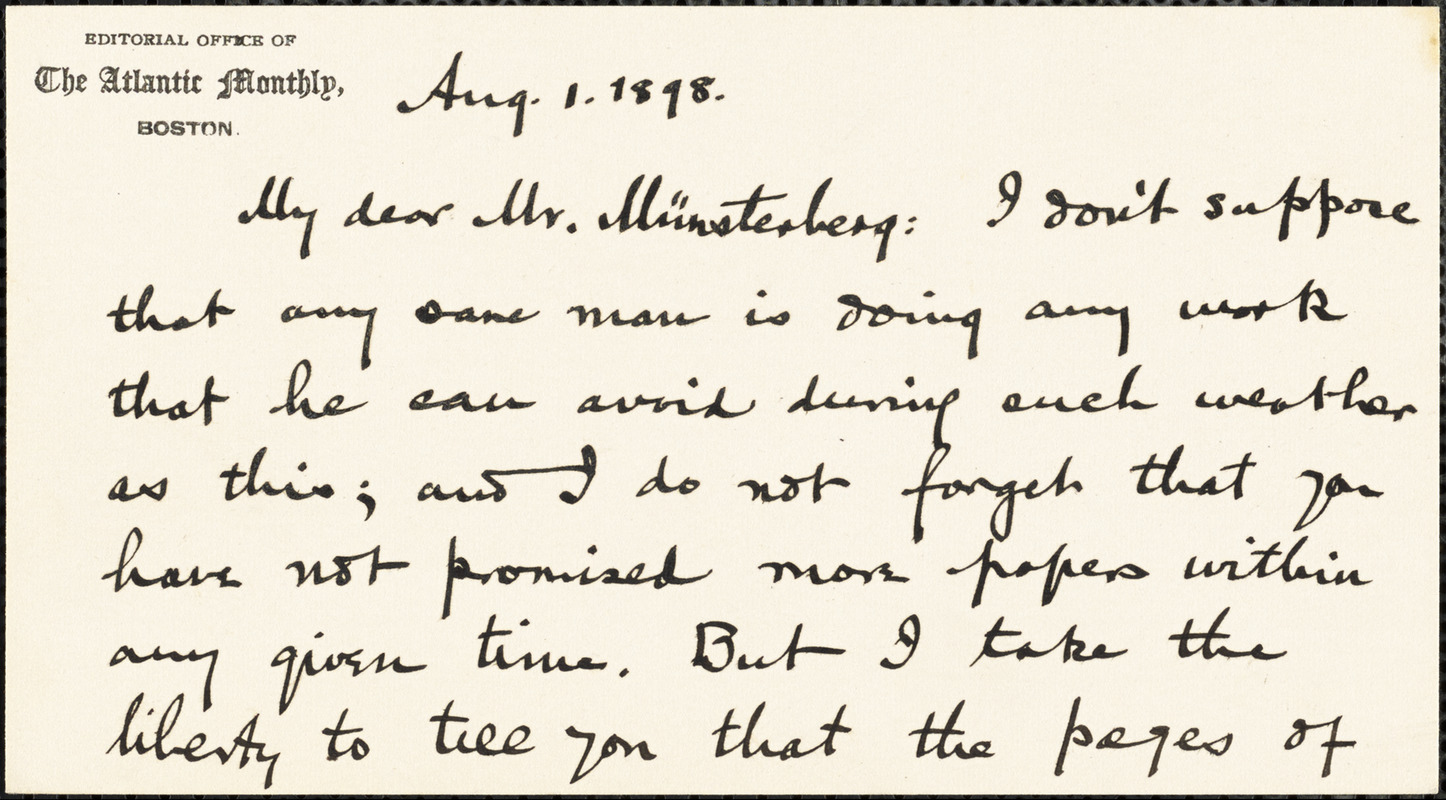 EDITORIAL OFFICE OF
The Atlantic Monthly,
BOSTON.
Aug. 1. 1898.
My dear Mr. Münsterberg: I don't suppose
that any sane man is doing any work
that he can avoid during such weather
as this; and I do not forget that you
have not promised more papers within
any given time. But I take the
liberty to tell you that the pages of